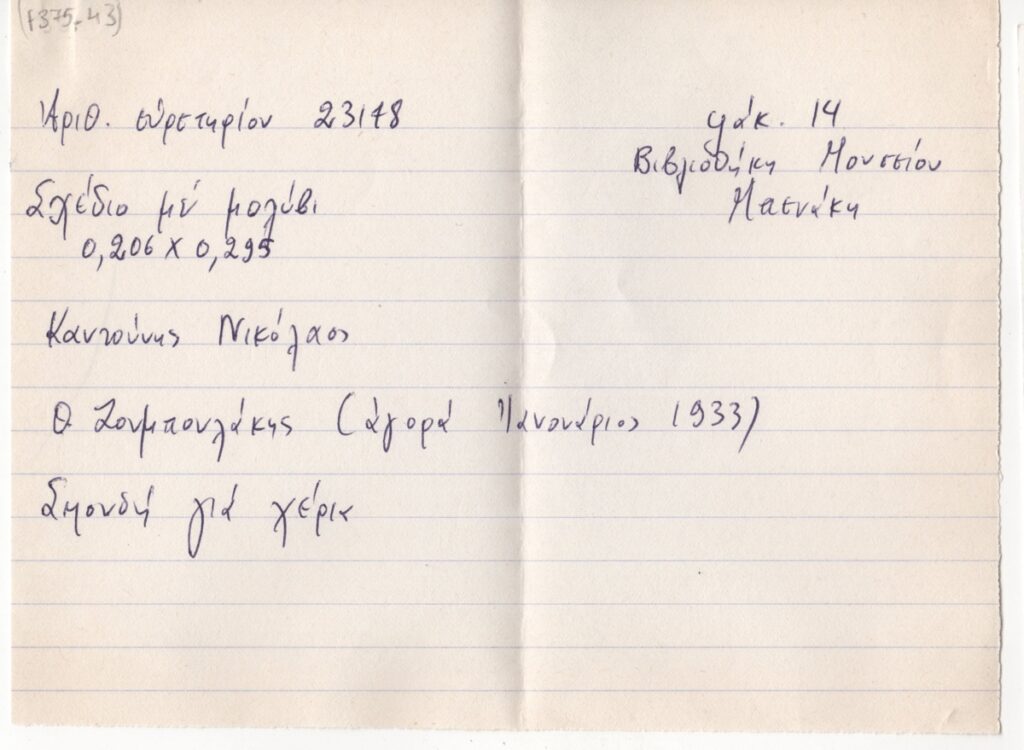 (1375-43)
Ἀριθ. εὑρετηρίου 23178
φάκ. 14
Βιβλιοθήκη Μουσείου
Μπενάκη
Σχέδιο μέ μολύβι
0,206 Χ 0,295
Καντούνης Νικόλαος
Θ Ζουμπουλάκης (ἀγορά Ἰανουάριος 1933)
Σπουδή γιά χέρια